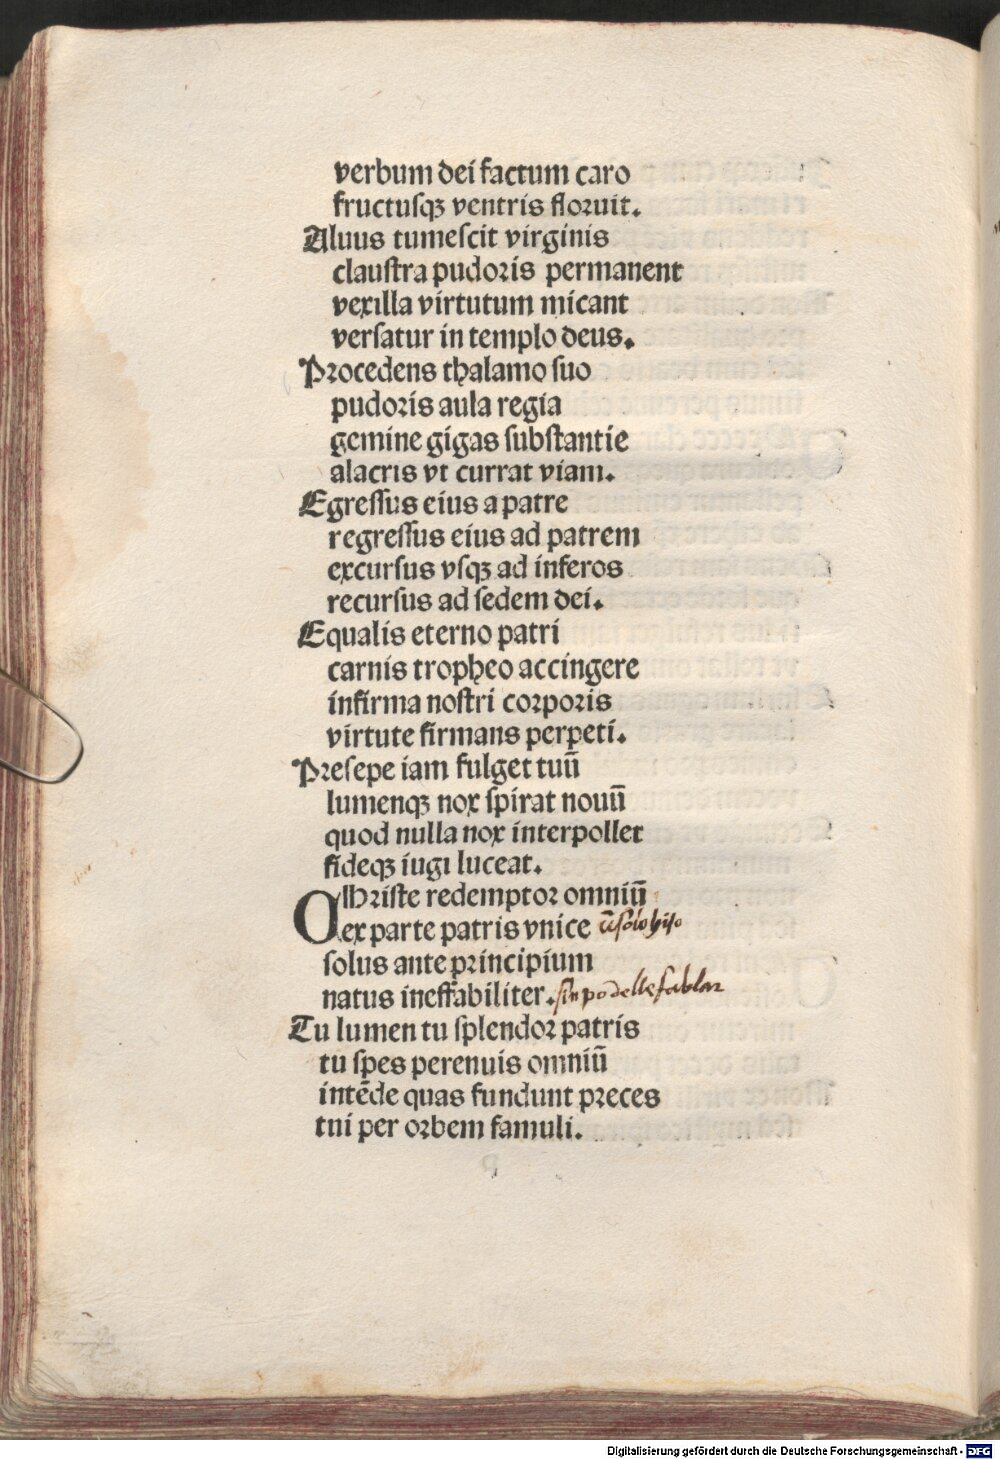 verbum dei factum caro
fructusqꝫ ventris floruit.
Aluus tumescit virginis
claustra pudoris permanent
vexilla virtutum micant
versatur in templo deus.
Procedens thalamo suo
pudoris aula regia
gemine gigas substantie
alacris vt currat viam.
Egressus eius a patre
regressus eius ad patrem
excursus vsqꝫ ad inferos
recursus ad sedem dei.
Equalis eterno patri
carnis tropheo accingere
infirma nostri corporis
virtute firmans perpeti.
Presepe iam fulget tuū
lumenqꝫ nox spirat nouū
quod nulla nox interpollet
fideqꝫ iugi luceat.
Christe redemptor omniū
ex parte patris vnice
solus ante principium
natus ineffabiliter. sin po delle fablar
Tu lumen tu splendor patris
tu spes perennis omniū
intēde quas fundunt preces
tui per orbem famuli.
Digitalisierung gefördert durch die Deutsche Forschungsgemeinschaft - DFG